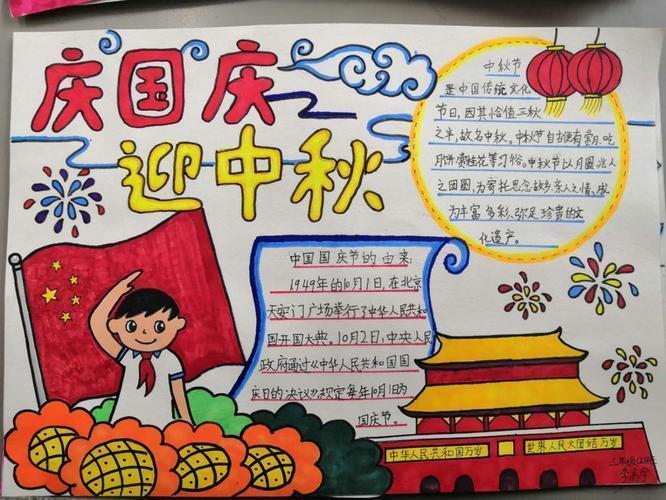 庆国庆
迎中秋
中秋节
是中国传统文化
节日，因其恰值三秋
之半，故名中秋。中秋节自古便有赏月、吃
月饼、赏桂花等习俗。中秋节以月圆兆人
之团圆，为寄托思念故乡，亲人之情，成
为丰富多彩、弥足珍贵的文
化遗产。
中国国庆节的由来：
1949年的10月1日，在北京
天安门广场举行了中华人民共和
国开国大典。10月2日，中央人民
政府通过《中华人民共和国国
庆日的决议》规定每年10月1日为
国庆节。
中华人民共和国万岁
世界人民大团结万岁